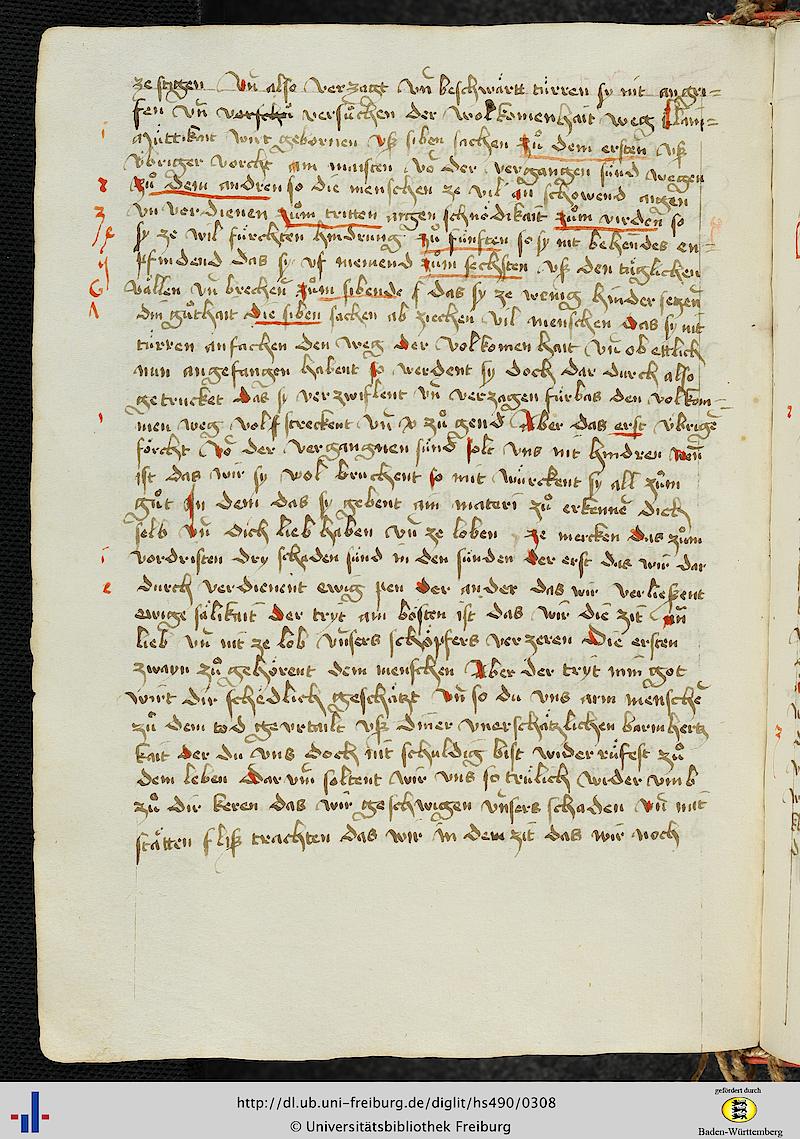 ze stigen Vn̄ also verzagt vn̄ beschwärt türren sy nit angri=
fen vn̄ versůchen der volkomenhait weg Klain=
můttikait wirt gebornen vß siben sachen Zů dem ersten vß
i
übriger vorcht am maisten vō der vergangen sünd wegen
2 Zů dem andren so die menschen ze vil an schowend aigen
3 vn verdienen Zům tritten aigen schnödikait Zům virden so
sy ze vil fürchten hindrung Zů fünften so sy nit behendes en=
pfindend das sy vf meinend Zům sechsten vß den täglichen
6 vällen vn̄ brechen Zům sibende ſ das sy ze wenig hinder setzen
din gůthait die siben sachen ab ziechen vil menschen das sy nit
türren anfachen den weg der volkomenhait vn̄ ob ettlich
nun angefangen habent so werdent sy doch dar durch also
getrucket das sy verzwiflent vn̄ verzagen fürbas den volkom=
men weg vol streckent vn̄ zů gend Aber das erst übrige
forcht vō der vergangnen sünd solt vns nit hindren wen̄
ist das wir sy wol bruchent so mit würckent sy all zům
gůt In dem das sy gebent ain materi zů erkenne dich
selb vn̄ dich lieb haben vn̄ ze loben ze mercken das zům
vordristen dry schaden sind in den sünden der erst das wir dar
durch verdienent ewig pen der ander das wir verließent
ewige sälikait der tryt am bösten ist das wir die zit an̄
lieb vn̄ nit ze lob vnsers schöpfers verzeren Die ersten
zwayn zů gehörent dem menschen Aber der tryt min got
wirt dir schedlich geschätzt Vn̄ so du vns arm mensche
zů dem tod geurtailt vß diner vnerschätzlichen barmhertz
kait der du vns doch nit schuldig bist widerrüfest zů
dem leben dar vm soltent wir vns so trülich wider vmb
zů dir keren das wir geschwigen vnsers schaden vn̄ mit
stätten fliß trachten das wir in dem zit das wir noch
http://dl.ub.uni-freiburg.de/diglit/hs490/0308
© Universitätsbibliothek Freiburg
gefördert durch
Baden-Württemberg